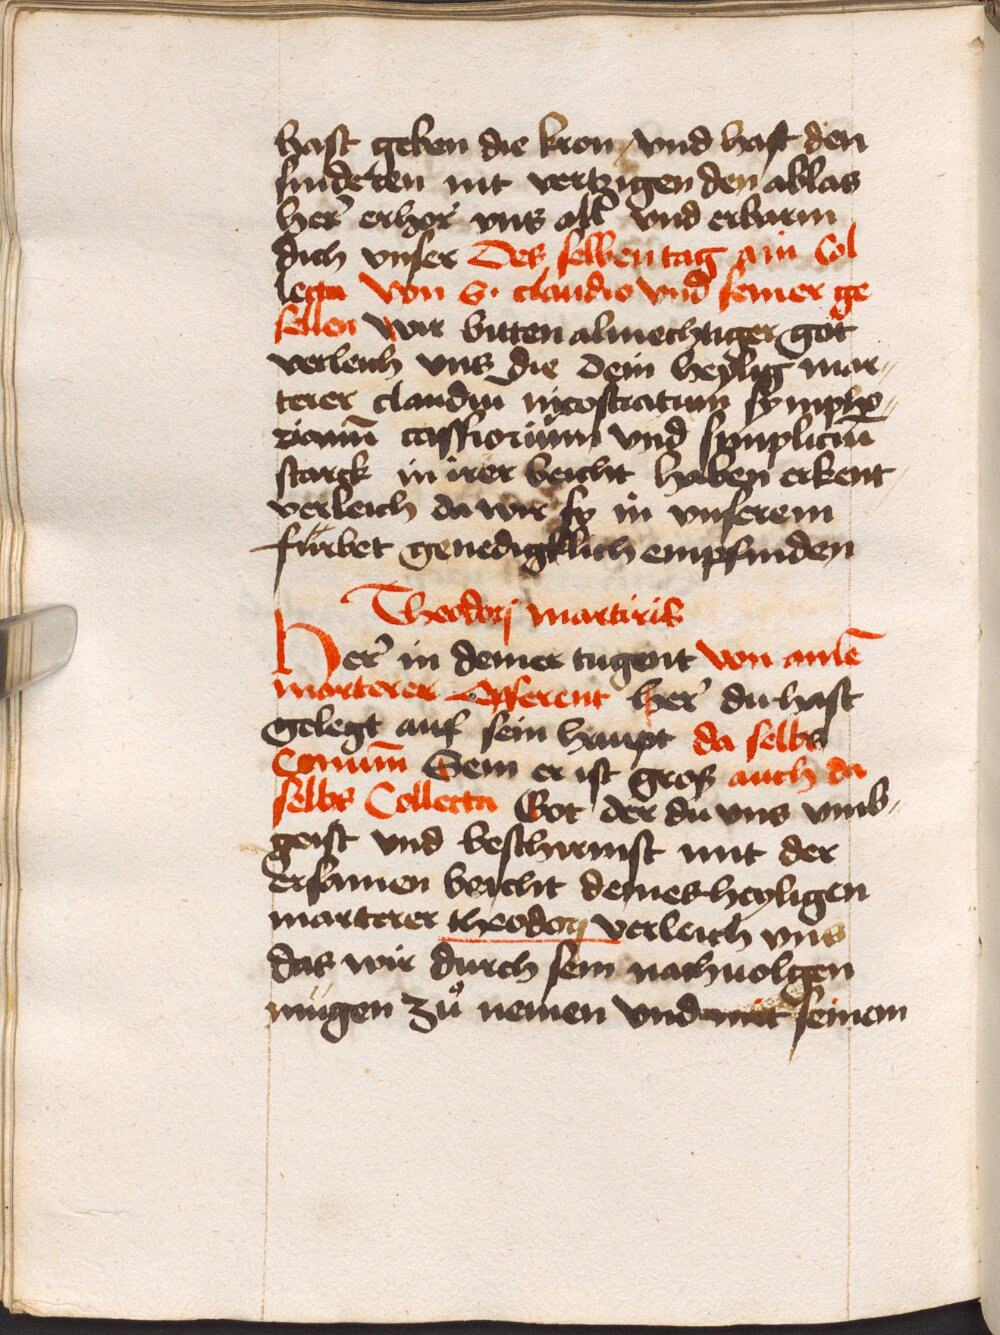 hast geben die kron / vnd hast den
sunderen mit vertzigen den ablas
her erhor vns all vnd erbarm
dich vnser Des selben tag ain Col
lecta von S. claudio vnd seiner ge
sellen Wir bitten almechtiger got
verleich vns die dein heylig mar„
terer claudiu nicostratum sympho
rianū castorium vnd simpliciū
starck in irer beicht haben erkent
verleich da wir sy in vnserem
fürbet genedigklich empfinden
Theodorj martiris
Her in deiner tugent von ainē
marterer Offerent her du hast
gelegt auf sein haupt da selbs
Comūm Sein er ist gros auch da
selbs Collecta Got der du vns vmb„
geist vnd beschirmst mit der
ersamen beicht deines heyligen
marterer theodorj verleich vns
das wir durch sein nachuolgen
mügen zů nemen vnd mit seinem